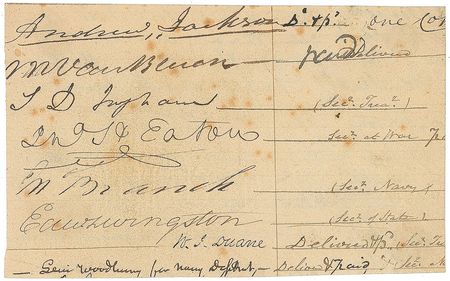 Andrew Jackson Do. & pd. one Co
M Van Buren paid Delivered
S D Ingham (Secy. Treay.)
Jno H Eaton Secy. at War paid
Jn Branch (Secy. Navy)
Edw Livingston (Secy. of State)
W. J. Duane Delivered & pd. (Secy. Tre
Levi Woodbury for Navy Depmt, Delivered & paid (Secy. N